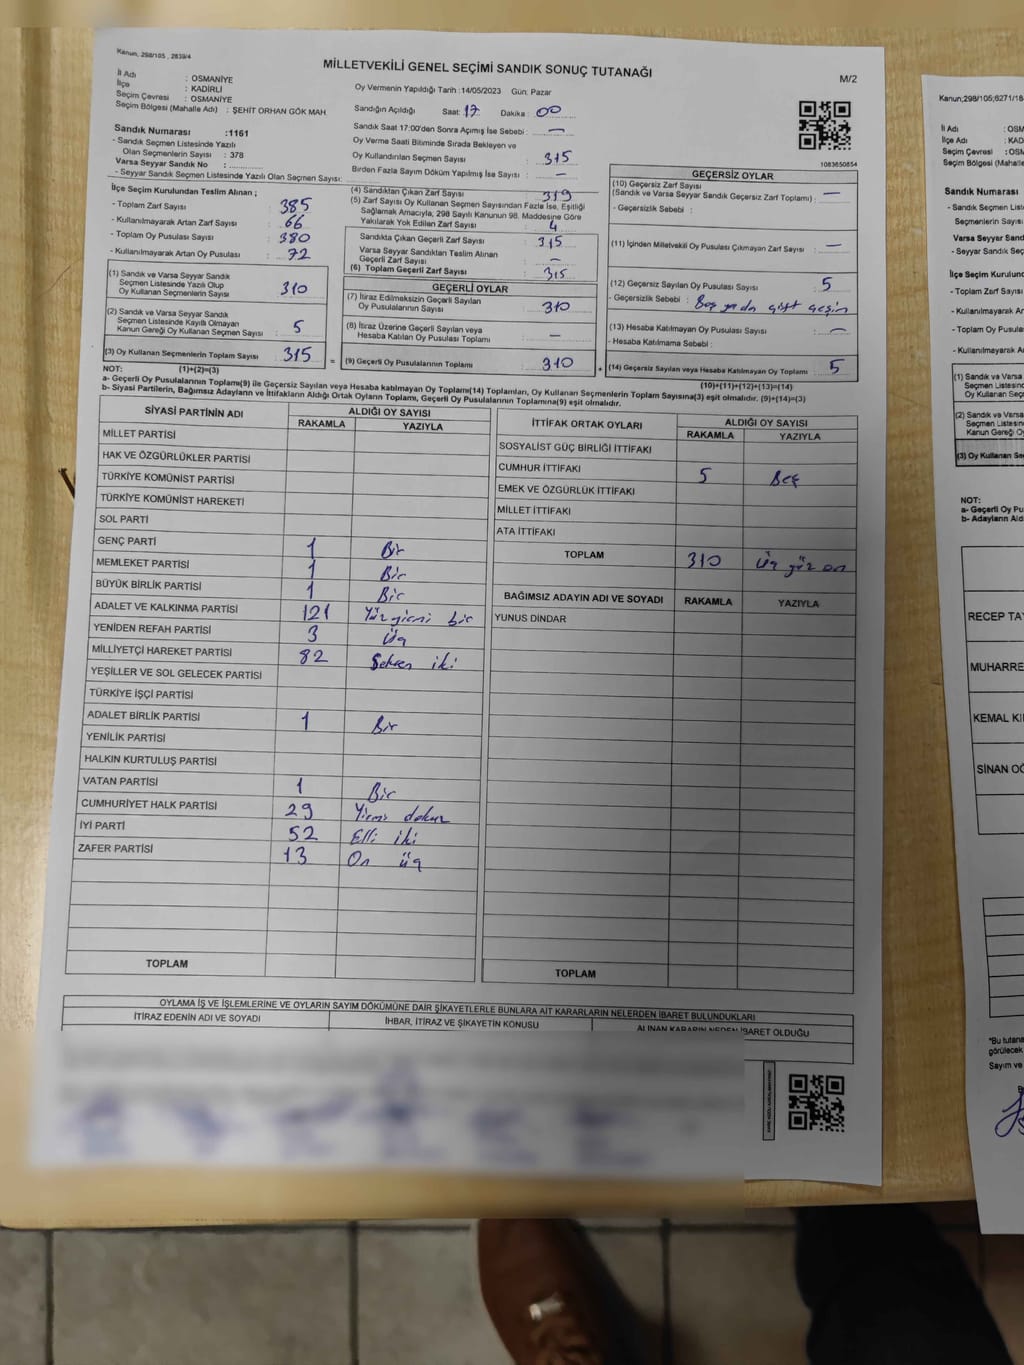 Kanun, 298/105 , 2839/4
MİLLETVEKİLİ GENEL SEÇİMİ SANDIK SONUÇ TUTANAĞI
M/2
İl Adı : OSMANİYE
İlçe : KADİRLİ
Seçim Çevresi : OSMANİYE
Seçim Bölgesi (Mahalle Adı) : ŞEHİT ORHAN GÖK MAH.
Oy Vermenin Yapıldığı Tarih :14/05/2023 Gün: Pazar
Sandığın Açıldığı Saat: 17 Dakika : 00
Sandık Saat 17:00'den Sonra Açımış İse Sebebi : —
Oy Verme Saati Bitiminde Sırada Bekleyen ve
Oy Kullandırılan Seçmen Sayısı : 315
Birden Fazla Sayım Döküm Yapılmış İse Sayısı : —
1083650854
Sandık Numarası :1161
- Sandık Seçmen Listesinde Yazılı
Olan Seçmenlerin Sayısı : 378
Varsa Seyyar Sandık No :
- Seyyar Sandık Seçmen Listesinde Yazılı Olan Seçmen Sayısı:
İlçe Seçim Kurulundan Teslim Alınan ;
- Toplam Zarf Sayısı : 385
- Kullanılmayarak Artan Zarf Sayısı : 66
- Toplam Oy Pusulası Sayısı : 380
- Kullanılmayarak Artan Oy Pusulası : 72
(1) Sandık ve Varsa Seyyar Sandık
Seçmen Listesinde Yazılı Olup
Oy Kullanan Seçmenlerin Sayısı : 310
(2) Sandık ve Varsa Seyyar Sandık
Seçmen Listesinde Kayıtlı Olmayan
Kanun Gereği Oy Kullanan Seçmen Sayısı : 5
(3) Oy Kullanan Seçmenlerin Toplam Sayısı : 315
(4) Sandıktan Çıkan Zarf Sayısı : 319
(5) Zarf Sayısı Oy Kullanan Seçmen Sayısından Fazla İse, Eşitliği
Sağlamak Amacıyla, 298 Sayılı Kanunun 98. Maddesine Göre
Yakılarak Yok Edilen Zarf Sayısı : 4
Sandıkta Çıkan Geçerli Zarf Sayısı : 315
Varsa Seyyar Sandıktan Teslim Alınan
Geçerli Zarf Sayısı : —
(6) Toplam Geçerli Zarf Sayısı : 315
GEÇERLİ OYLAR
(7) İtiraz Edilmeksizin Geçerli Sayılan
Oy Pusulalarının Sayısı : 310
(8) İtiraz Üzerine Geçerli Sayılan veya
Hesaba Katılan Oy Pusulası Toplamı : —
= (9) Geçerli Oy Pusulalarının Toplamı : 310 +
GEÇERSİZ OYLAR
(10) Geçersiz Zarf Sayısı
(Sandık ve Varsa Seyyar Sandık Geçersiz Zarf Toplamı) : —
- Geçersizlik Sebebi :
(11) İçinden Milletvekili Oy Pusulası Çıkmayan Zarf Sayısı : —
(12) Geçersiz Sayılan Oy Pusulası Sayısı : 5
- Geçersizlik Sebebi : Boş yada çift seçim
(13) Hesaba Katılmayan Oy Pusulası Sayısı : —
- Hesaba Katılmama Sebebi :
(14) Geçersiz Sayılan veya Hesaba Katılmayan Oy Toplamı : 5
NOT: (1)+(2)=(3)
(10)+(11)+(12)+(13)=(14)
a- Geçerli Oy Pusulalarının Toplamı(9) ile Geçersiz Sayılan veya Hesaba katılmayan Oy Toplamı(14) Toplamları, Oy Kullanan Seçmenlerin Toplam Sayısına(3) eşit olmalıdır. (9)+(14)=(3)
b- Siyasi Partilerin, Bağımsız Adayların ve İttifakların Aldığı Ortak Oyların Toplamı, Geçerli Oy Pusulalarının Toplamına(9) eşit olmalıdır.
SİYASİ PARTİNİN ADI ALDIĞI OY SAYISI
RAKAMLA YAZIYLA
MİLLET PARTİSİ
HAK VE ÖZGÜRLÜKLER PARTİSİ
TÜRKİYE KOMÜNİST PARTİSİ
TÜRKİYE KOMÜNİST HAREKETİ
SOL PARTİ
GENÇ PARTİ 1 Bir
MEMLEKET PARTİSİ 1 Bir
BÜYÜK BİRLİK PARTİSİ 1 Bir
ADALET VE KALKINMA PARTİSİ 121 Yüz yirmi bir
YENİDEN REFAH PARTİSİ 3 Üç
MİLLİYETÇİ HAREKET PARTİSİ 82 Seksen iki
YEŞİLLER VE SOL GELECEK PARTİSİ
TÜRKİYE İŞÇİ PARTİSİ
ADALET BİRLİK PARTİSİ 1 Bir
YENİLİK PARTİSİ
HALKIN KURTULUŞ PARTİSİ
VATAN PARTİSİ 1 Bir
CUMHURİYET HALK PARTİSİ 29 Yirmi dokuz
İYİ PARTİ 52 Elli iki
ZAFER PARTİSİ 13 On üç
TOPLAM
İTTİFAK ORTAK OYLARI ALDIĞI OY SAYISI
RAKAMLA YAZIYLA
SOSYALİST GÜÇ BİRLİĞİ İTTİFAKI
CUMHUR İTTİFAKI 5 Beş
EMEK VE ÖZGÜRLÜK İTTİFAKI
MİLLET İTTİFAKI
ATA İTTİFAKI
TOPLAM 310 Üç yüz on
BAĞIMSIZ ADAYIN ADI VE SOYADI RAKAMLA YAZIYLA
YUNUS DİNDAR
TOPLAM
OYLAMA İŞ VE İŞLEMLERİNE VE OYLARIN SAYIM DÖKÜMÜNE DAİR ŞİKAYETLERLE BUNLARA AİT KARARLARIN NELERDEN İBARET BULUNDUKLARI
İTİRAZ EDENİN ADI VE SOYADI İHBAR, İTİRAZ VE ŞİKAYETİN KONUSU ALINAN KARARIN NEDEN İBARET OLDUĞU
Kanun;298/105;6271/18
İl Adı : OSM
İlçe Adı : KAD
Seçim Çevresi : OSM
Seçim Bölgesi (Mahalle
Sandık Numarası
- Sandık Seçmen List
Seçmenlerin Sayısı
Varsa Seyyar Sandık
- Seyyar Sandık Seç
İlçe Seçim Kurulund
- Toplam Zarf Sayısı
- Kullanılmayarak Ar
- Toplam Oy Pusulas
- Kullanılmayarak
(1) Sandık ve Varsa
Seçmen Listesind
Oy Kullanan Seç
(2) Sandık ve Varsa
Seçmen Listesin
Kanun Gereği O
(3) Oy Kullanan Se
NOT:
a- Geçerli Oy Pu
b- Adayların Ald
RECEP TA
MUHARRE
KEMAL KI
SİNAN OĞ
*Bu tutana
görülecek
Sayım ve